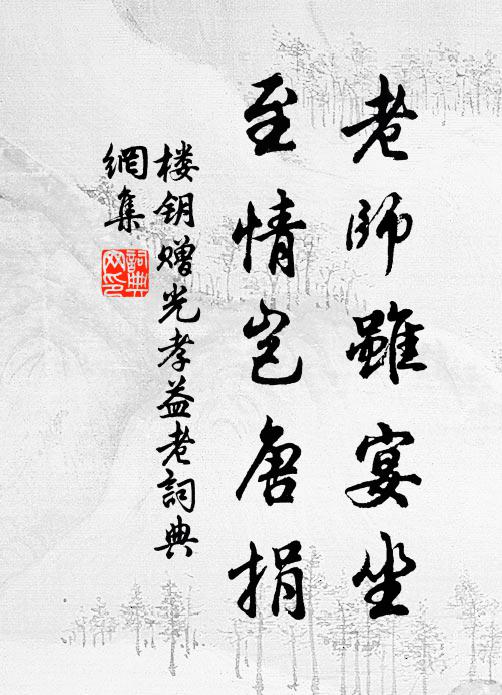 老師雖宴坐
至情岂唐捐
楼钥赠光孝益老詞典
網集
詞典
网印